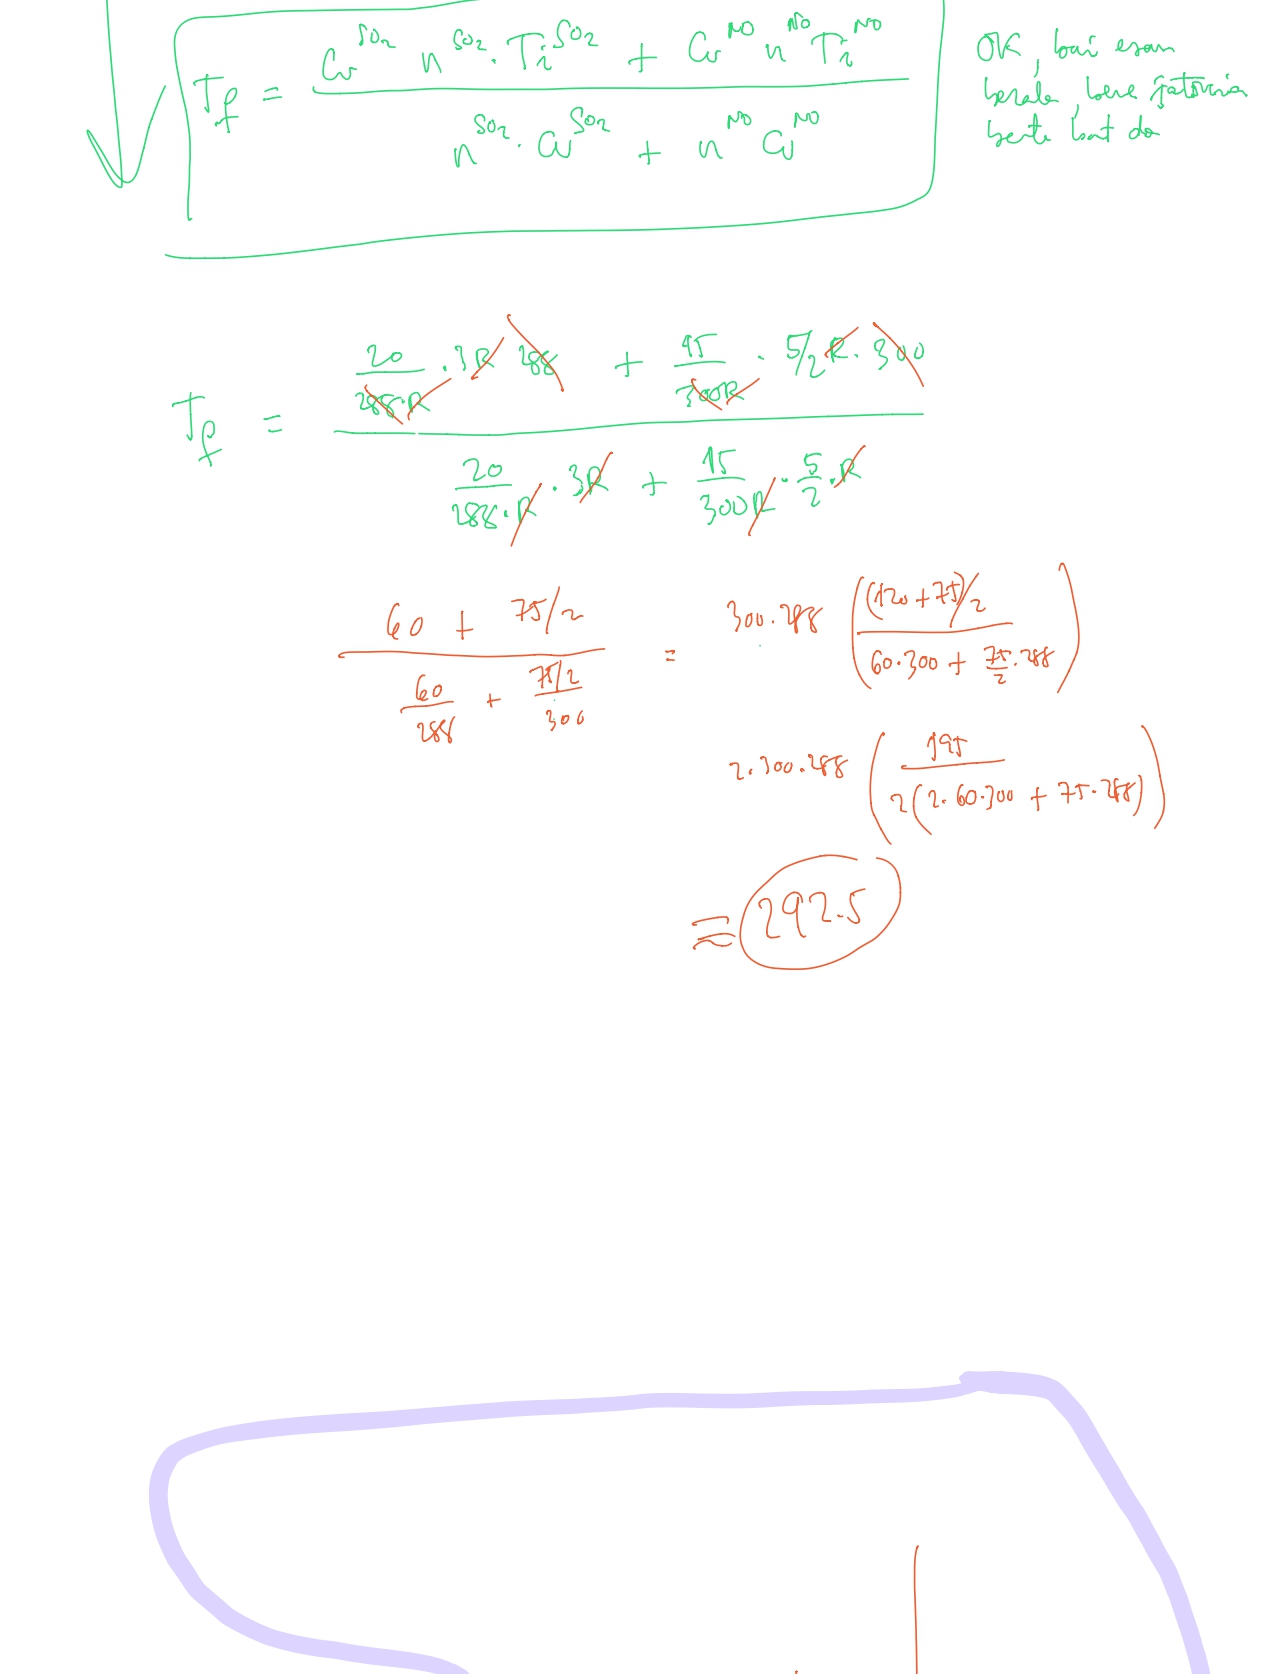 T_f = (Cv^SO₂ n^SO₂ · Ti^SO₂ + Cv^NO n^NO Ti^NO) / (n^SO₂ · Cv^SO₂ + n^NO Cv^NO)
OK, bai esan
bezala, bere
bat da
T_f = (20/(288·R) · 3R 288 + 15/(300R) · 5/2 R · 300) / (20/(288·R) · 3R + 15/(300R) · 5/2 · R)
(60 + 75/2) / (60/288 + (75/2)/300) = 300·288 (((120+75)/2) / (60·300 + 75/2 · 288))
2·300·288 (195 / (2(2·60·300 + 75·288)))
≅ 292.5